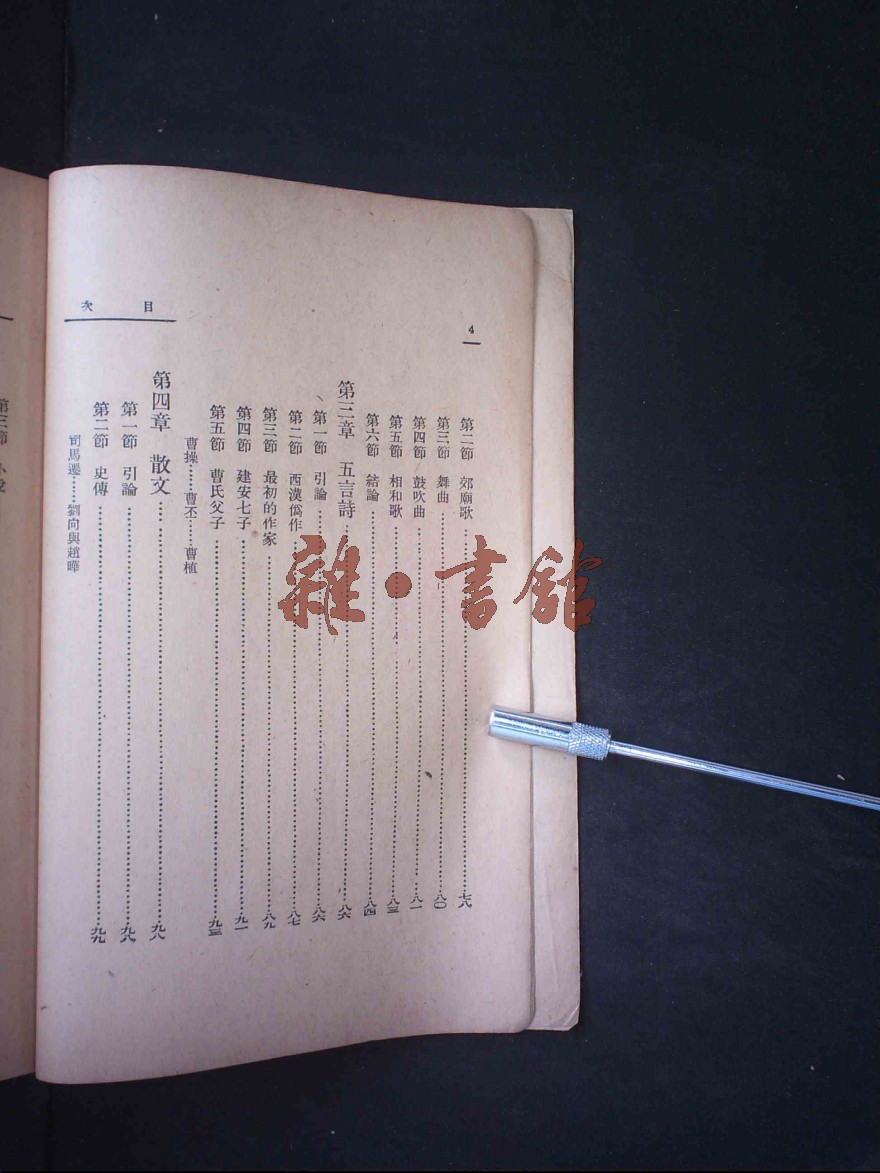 目次
4
第二節 郊廟歌……七八
第三節 舞曲……八〇
第四節 鼓吹曲……八一
第五節 相和歌……八三
第六節 結論……八四
第三章 五言詩……八六
第一節 引論……八六
第二節 西漢僞作……八七
第三節 最初的作家……八九
第四節 建安七子……九一
第五節 曹氏父子……九三
曹操……曹丕……曹植
第四章 散文……九八
第一節 引論……九八
第二節 史傳……九九
司馬遷……劉向與趙曄
第三節
雜·書館